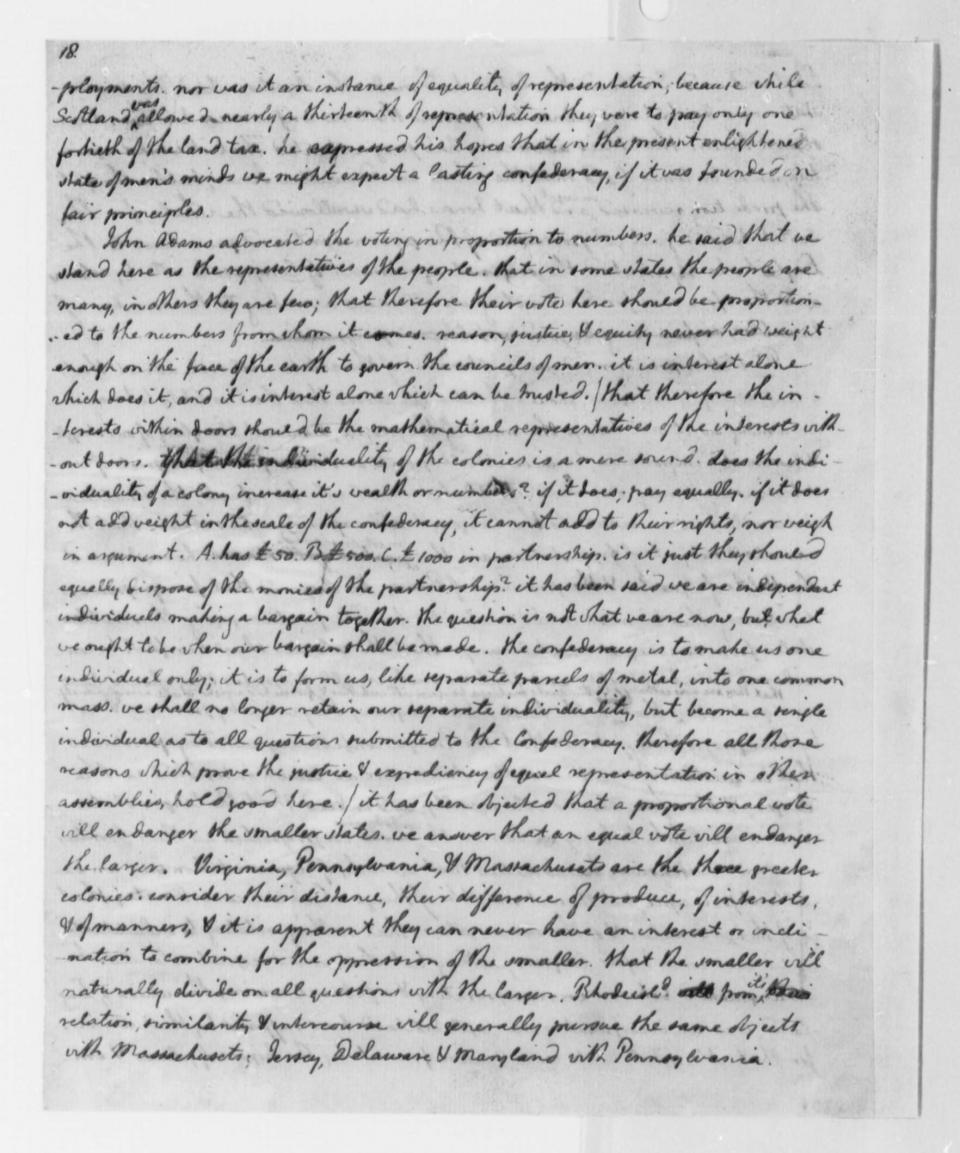 18.
-ployments. nor was it an instance of equality of representation; because while
Scotland was allowed nearly a thirteenth of representation they were to pay only one
fortieth of the land tax. he expressed his hopes that in the present enlightened
state of men's minds we might expect a lasting confederacy, if it was founded on
fair principles.
John Adams advocated the voting in proportion to numbers. he said that we
stand here as the representatives of the people. that in some states the people are
many, in others they are few; that therefore their vote here should be proportion-
-ed to the numbers from whom it comes. reason, justice, & equity never had weight
enough on the face of the earth to govern the councils of men. it is interest alone
which does it, and it is interest alone which can be trusted. / that therefore the in-
-terests within doors should be the mathematical representatives of the interests with-
-out doors. that the individuality of the colonies is a mere sound. does the indi-
-viduality of a colony increase it's wealth or numbers? if it does; pay equally. if it does
not add weight in the scale of the confederacy, it cannot add to their rights, nor weigh
in argument. A. has £50. B. £500. C. £1000 in partnership. is it just they should
equally dispose of the monies of the partnership? it has been said we are independent
individuals making a bargain together. the question is not what we are now, but what
we ought to be when our bargain shall be made. the confederacy is to make us one
individual only; it is to form us, like separate parcels of metal, into one common
mass. we shall no longer retain our separate individuality, but become a single
individual as to all questions submitted to the Confederacy. therefore all those
reasons which prove the justice & expediency of equal representation in other
assemblies, hold good here. / it has been objected that a proportional vote
will endanger the smaller states. we answer that an equal vote will endanger
the larger. Virginia, Pennsylvania, & Massachusets are the three greater
colonies. consider their distance, their difference of produce, of interests,
& of manners, & it is apparent they can never have an interest or incli-
-nation to combine for the oppression of the smaller. that the smaller will
naturally divide on all questions with the larger. Rhodeisld. from it's
relation, similarity & intercourse will generally pursue the same objects
with Massachusets; Jersey, Delaware & Maryland with Pennsylvania.